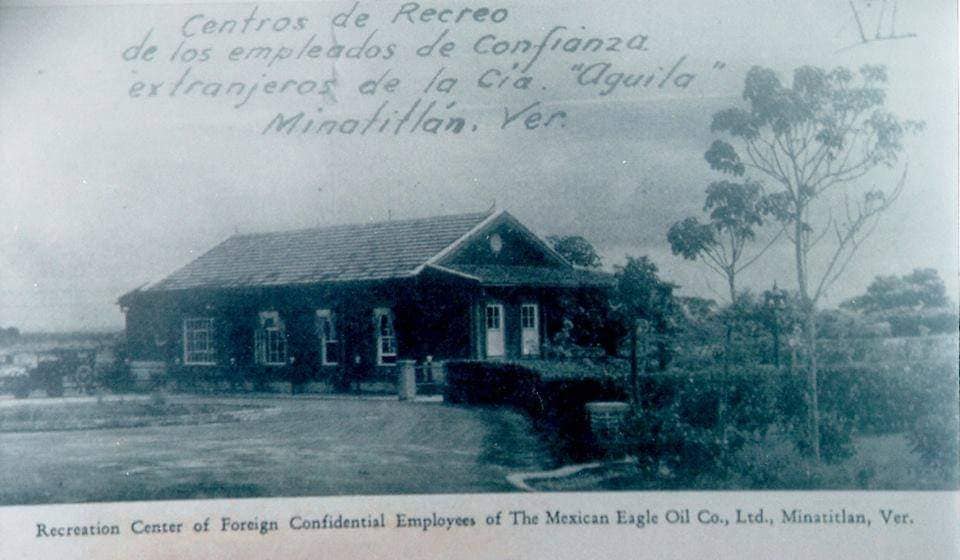 Centros de Recreo
de los empleados de Confianza
extranjeros de la Cía. "Aguila"
Minatitlán, Ver.
VII
Recreation Center of Foreign Confidential Employees of The Mexican Eagle Oil Co., Ltd., Minatitlan, Ver.